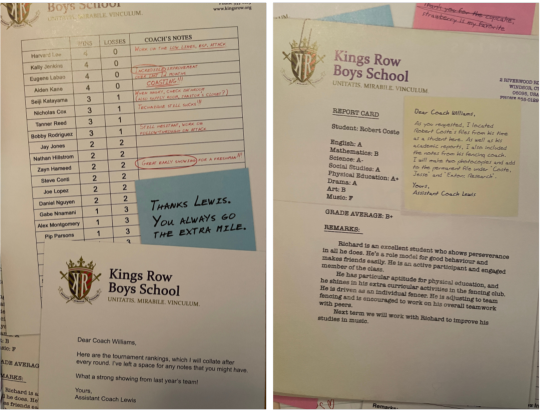 Boys School
UNITATIS. MIRABILE. VINCULUM.
www.kingsrow.org
WINS LOSSES COACH'S NOTES
Harvard Lee 4 0
Kally Jenkins 4 0
Eugene Labao 4 0
Aiden Kane 4 0
COASTING!!
Seiji Katayama 3 1
Nicholas Cox 3 1
Tanner Reed 3 1
Bobby Rodriguez 3 1
STILL HESITANT, WORK ON
FOLLOW-THROUGH ON ATTACK
Jay Jones 2 2
Nathan Hillstrom 2 2
Zayn Hameed 2 2
GREAT EARLY SHOWING FOR A FRESHMAN!!
Steve Conti 2 2
Joe Lopez 2 2
Daniel Nguyen 2 2
Gabe Nnamani 1 3
Alex Montgomery 1 3
Pip Parsons 1 3
THANKS LEWIS.
YOU ALWAYS GO
THE EXTRA MILE.
Kings Row
Boys School
UNITATIS. MIRABILE. VINCULUM.
Dear Coach Williams,
Here are the tournament rankings, which I will collate after
every round. I've left a space for any notes that you might have.
What a strong showing from last year's team!
Yours,
Assistant Coach Lewis
Kings Row
Boys School
UNITATIS. MIRABILE. VINCULUM.
REPORT CARD
Student: Robert Coste
English: A
Mathematics: B
Science: A-
Social Studies: A
Physical Education: A+
Drama: A
Art: B
Music: F
Dear Coach Williams,
As you requested, I located
Robert Coste's files from his time
as a student here. As well as his
academic reports, I also included
the notes from his fencing coach.
I will make two photocopies and add
to the permanent file under 'Coste,
Jesse' and 'Extern Research'.
Yours,
Assistant Coach Lewis
GRADE AVERAGE: B+
REMARKS:
Richard is an excellent student who shows perseverance
in all he does. He's a role model for good behaviour and
makes friends easily. He is an active participant and engaged
member of the class.
He has particular aptitude for physical education, and
he shines in his extra curricular activities in the fencing club.
He is driven as an individual fencer. He is adjusting to team
fencing and is encouraged to work on his overall teamwork
with peers.
Next term we will work with Richard to improve his
studies in music.